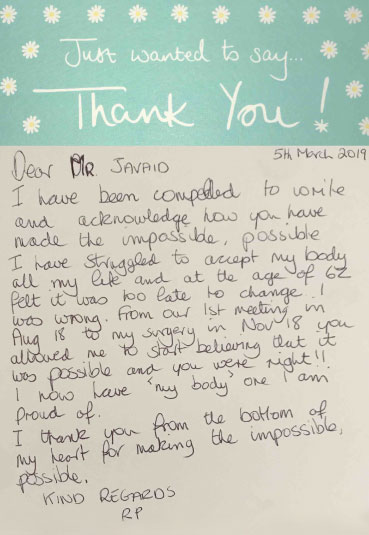 Just wanted to say...
Thank You!
5th March 2019
Dear MR. JAVAID
I have been compelled to write
and acknowledge how you have
made the impossible, possible
I have struggled to accept my body
all my life and at the age of 62
felt it was too late to change. I
was wrong. From our 1st meeting in
Aug 18 to my surgery in Nov 18 you
allowed me to start believing that it
was possible and you were right!!
I now have 'my body' one I am
proud of.
I thank you from the bottom of
my heart for making the impossible,
possible.
KIND REGARDS
RP